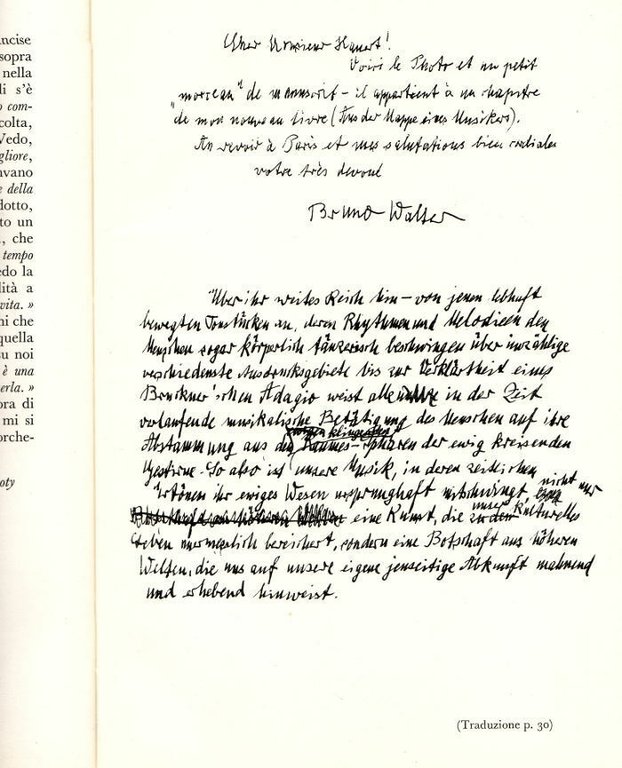 ncise
sopra
nella
li s'è
o com-
colta,
Vedo,
gliore,
nvano
e della
dotto,
to un
, che
tempo
edo la
lità a
vita. »
ni che
quella
su noi
è una
erla. »
ora di
mi si
orche-
oty
Cher Monsieur Hauert!
Voici le Photo et un petit
„morceau" de manuscrit – il appartient à un chapitre
de mon nouveau livre (Aus der Mappe eines Musikers).
Au revoir à Paris et mes salutations bien cordiales
votre très devoué
Bruno Walter
Über ihr weites Reich hin – von jenen lebhaft
bewegten Tonstücken an, deren Rhythmen und Melodieen den
Menschen sogar körperlich tänzerisch beschwingen über unzählige
verschiedenste Ausdrucksgebiete bis zur Verklärtheit eines
Bruckner'schen Adagio weist alle in der Zeit
verlaufende musikalische Betätigung des Menschen auf ihre
Abstammung aus den klingenden
Raumes-Sphären der ewig kreisenden
Gestirne. So also ist unsere Musik, in deren zeitlichem
Ertönen ihr ewiges Wesen ursprunghaft mitschwingt, nicht nur
eine Kunst, die unser kulturelles
Leben unermesslich bereichert, sondern eine Botschaft aus höheren
Welten, die uns auf unsere eigene jenseitige Abkunft mahnend
und erhebend hinweist.
(Traduzione p. 30)